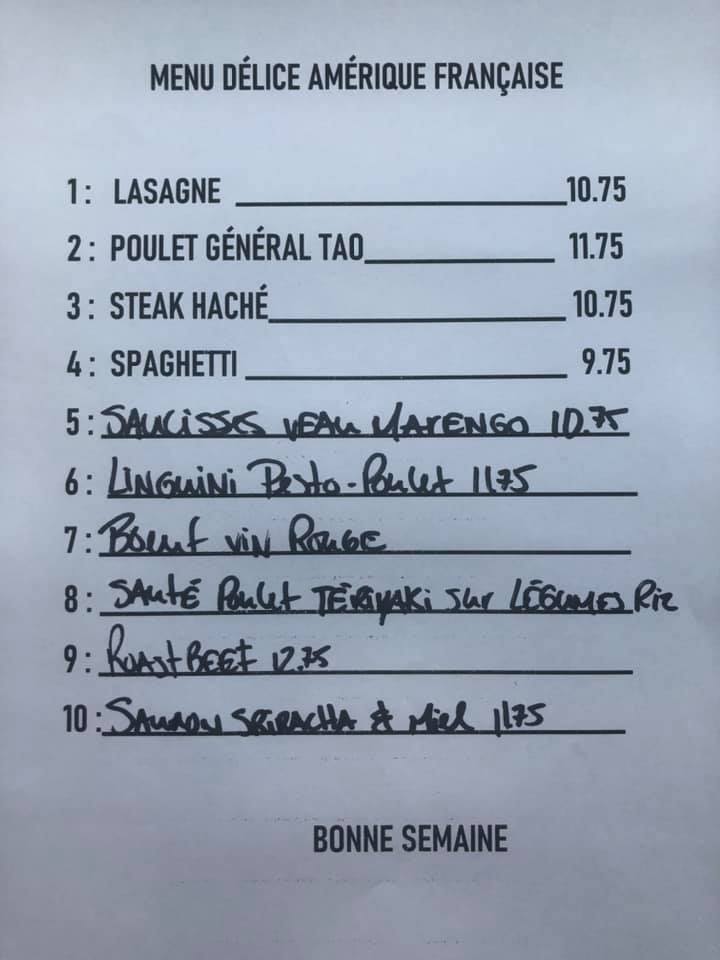 MENU DÉLICE AMÉRIQUE FRANÇAISE
1: LASAGNE 10.75
2: POULET GÉNÉRAL TAO 11.75
3: STEAK HACHÉ 10.75
4: SPAGHETTI 9.75
5: SAUCISSES VEAU MARENGO 10.75
6: LINGUINI Pesto-Poulet 1175
7: Boeuf VIN ROUGE
8: SAUTÉ Poulet TÉRIYAKI sur LÉGUMES Riz
9: ROAST BEEF 12.75
10: SAUMON SRIRACHA & Miel 1175
BONNE SEMAINE